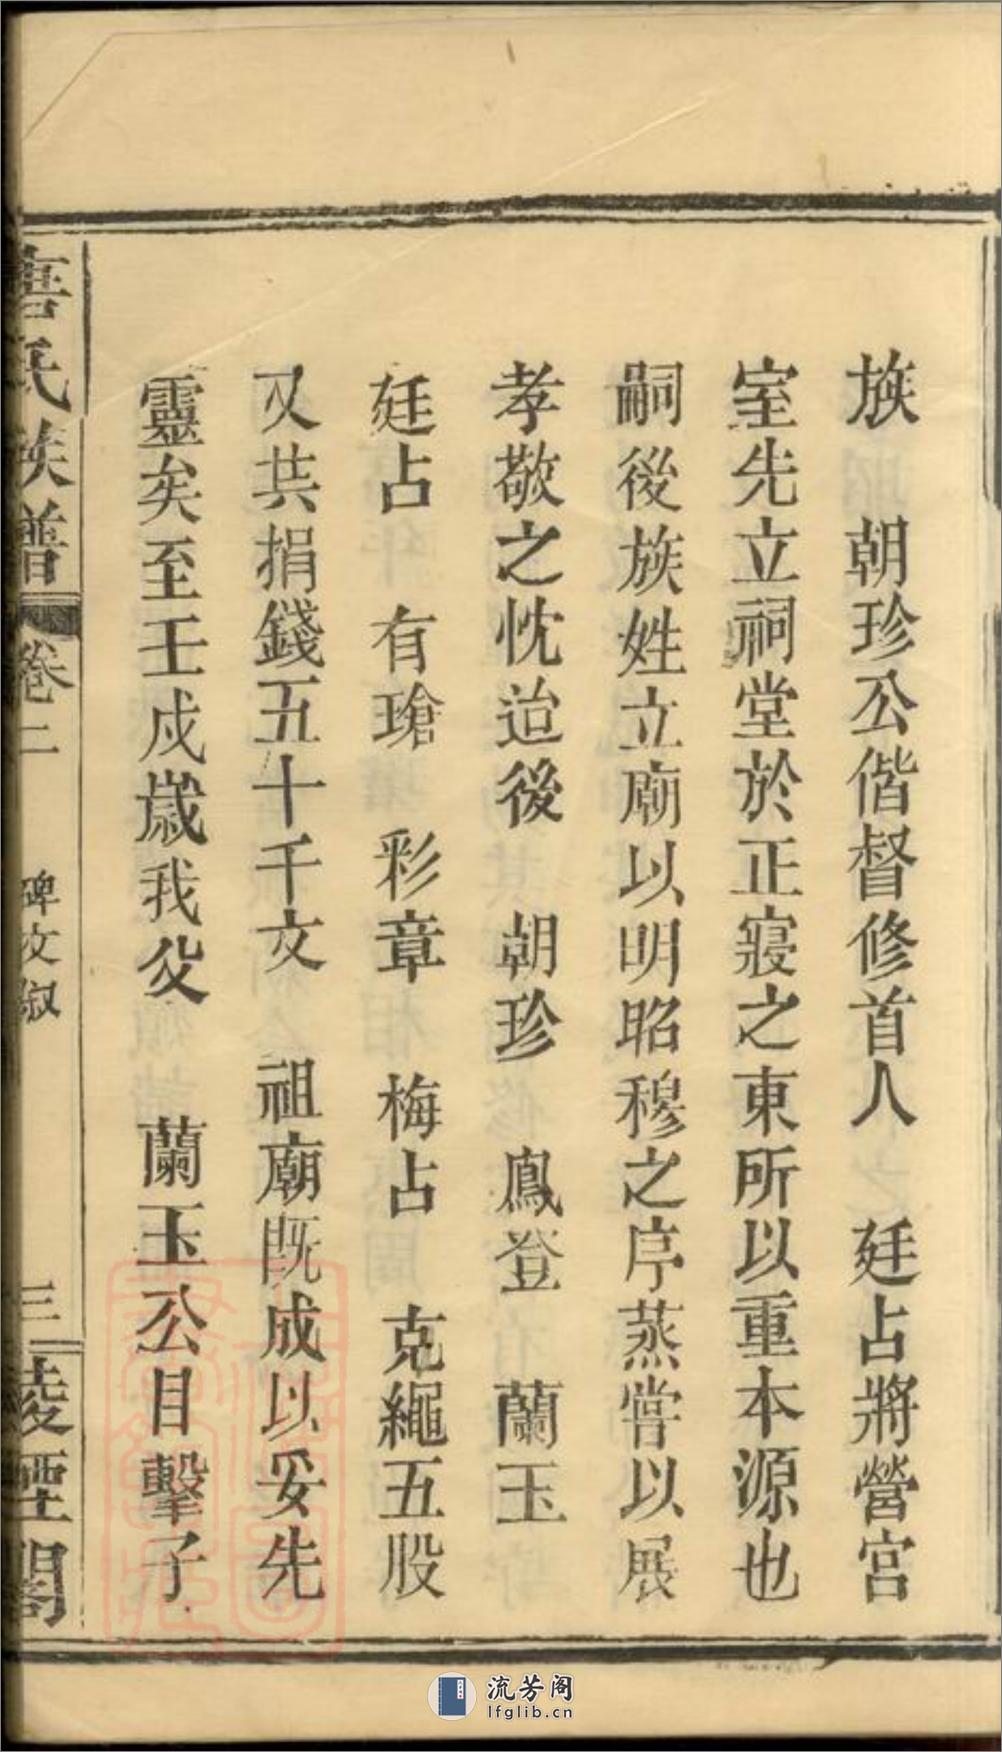 族 朝珍公偕督修首人 廷占將營宮
室先立祠堂於正寢之東所以重本源也
嗣後族姓立廟以明昭穆之序蒸嘗以展
孝敬之忱迨後 朝珍 鳳登 蘭玉
廷占 有瑲 彩章 梅占 克繩五股
又共捐錢五十千文 祖廟既成以妥先
靈矣至壬戍歲我父 蘭玉公目擊子
唐氏族譜 卷二 碑文敘 三 凌煙閣
流芳阁
lfglib.cn